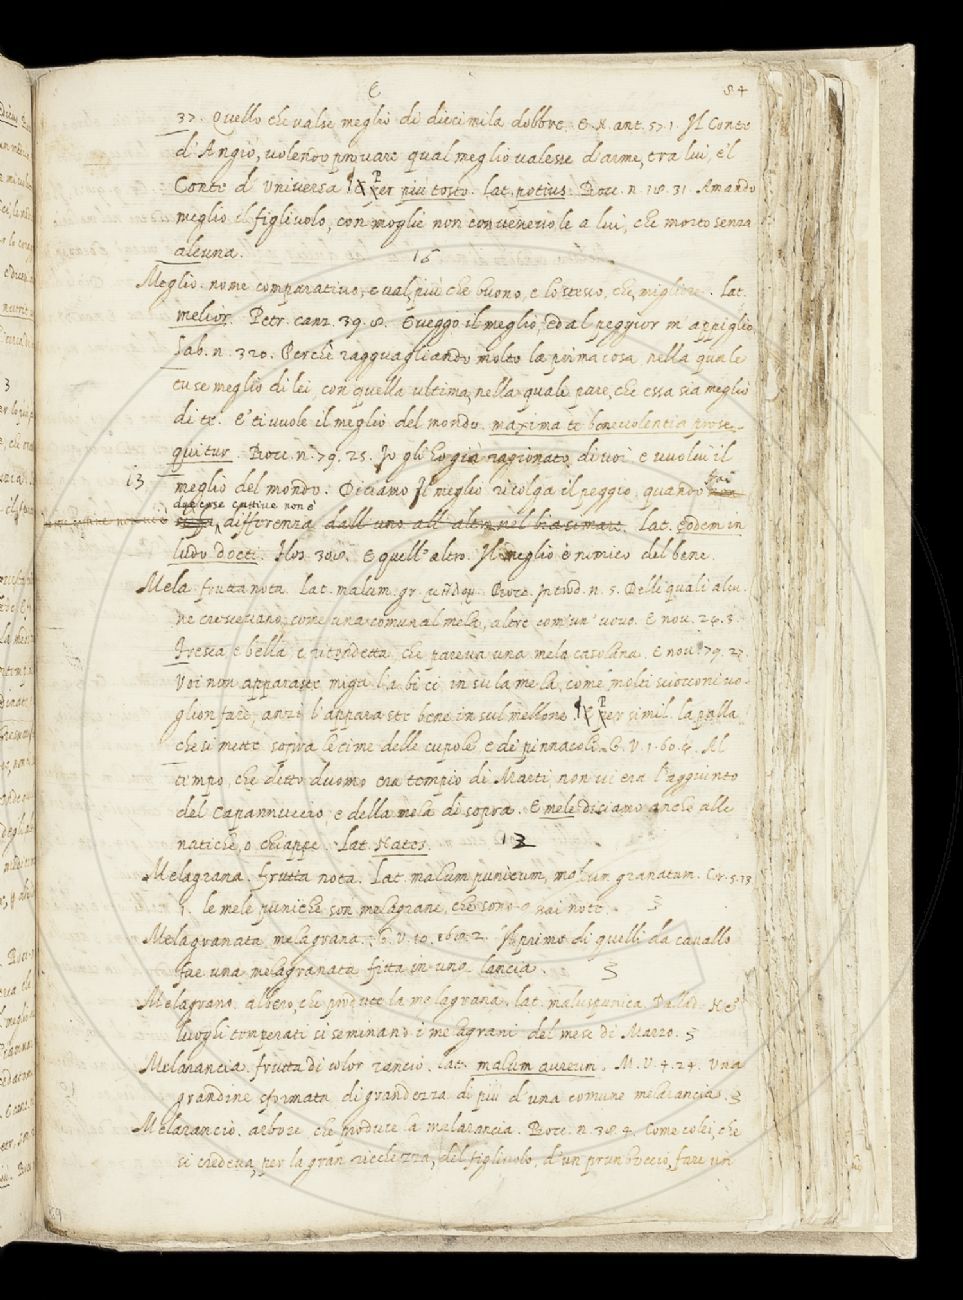 E 84
37. Quello che valse meglio di diecimila dobbre. E N. ant. 57. 1. Il Conte
d'Angiò, volendo provare qual meglio valesse d'arme, tra lui, e'l
Conte d'Universa Per più tosto. lat. potius. Bocc. n. 18. 31. Amando
meglio il figliuolo, con moglie non convenevole a lui, che morto senza
alcuna. 16
Meglio. nome comparativo, e val, più che buono, e lo stesso, che, migliore. Lat.
melior. Petr. canz. 39. 8. E veggo il meglio, ed al peggior m'appiglio
Lab. n. 320. Perchè ragguagliando molto la prima cosa nella quale
tu se meglio di lei, con quella ultima, nella quale pare, che essa sia meglio
di te. E' ti vuole il meglio del mondo. maxima te benevolentia prose-
quitur. Bocc. n. 79. 25. Io gli ho già ragionato di voi e vuolvi il
13 meglio del mondo. Diciamo Il meglio ricolga il peggio, quando fra
due cose cattive non è
differenza dall'uno all'altro nel biasimare. Lat. eodem in
ludo docti. Flos. 308. E quell'altro. Il meglio è nimico del bene.
Mela. frutta nota. Lat. malum. gr. μῆλον. Bocc. Introd. n. 5. Delle quali alcu-
ne crescevano, come una comunal mela, altre com'un'uovo. E nov. 29. 3.
Fresca, e bella e ritondetta, che pareva una mela casolana. E nov. 79. 27.
Voi non apparaste miga l'a bi ci in su la mela, come molti sciocconi vo-
glion fare, anzi l'apparaste bene in sul mellone. Per simil. la palla
che si mette sopra le cime delle cupole, e de' pinnacoli. G. V. 1. 60. 4. Al
tempo, che detto duomo era tempio di Marti, non vi era l'aggiunto
del Capannuccio, e della mela di sopra. E mele diciamo anche alle
natiche, o chiappe. Lat. Nates. 13
Melagrana. frutta nota. Lat. malum punicum, malum granatum. Cr. 5. 13
1. le mele puniche son melagrane, che sono assai note. 3
Melagranata, melagrana. G. V. 10. 168. 2. Il primo di quelli da cavallo
fue una melagranata fitta in una lancia. 3
Melagrano. albero, che produce la melagrana, lat. malus punica. Pallad. Ne'
luoghi temperati si seminano i melagrani del mese di Marzo. 3
Melarancia. frutta di color rancio. lat. malum aureum. M. V. 4. 24. Una
grandine sformata di grandezza di più d'una comune melarancia. 3
Melarancio. arbore che produce la melarancia. Bocc. n. 38. 4. Come colei, che
si credeva, per la gran ricchezza, del figliuolo, d'un prun bocciò, fare un